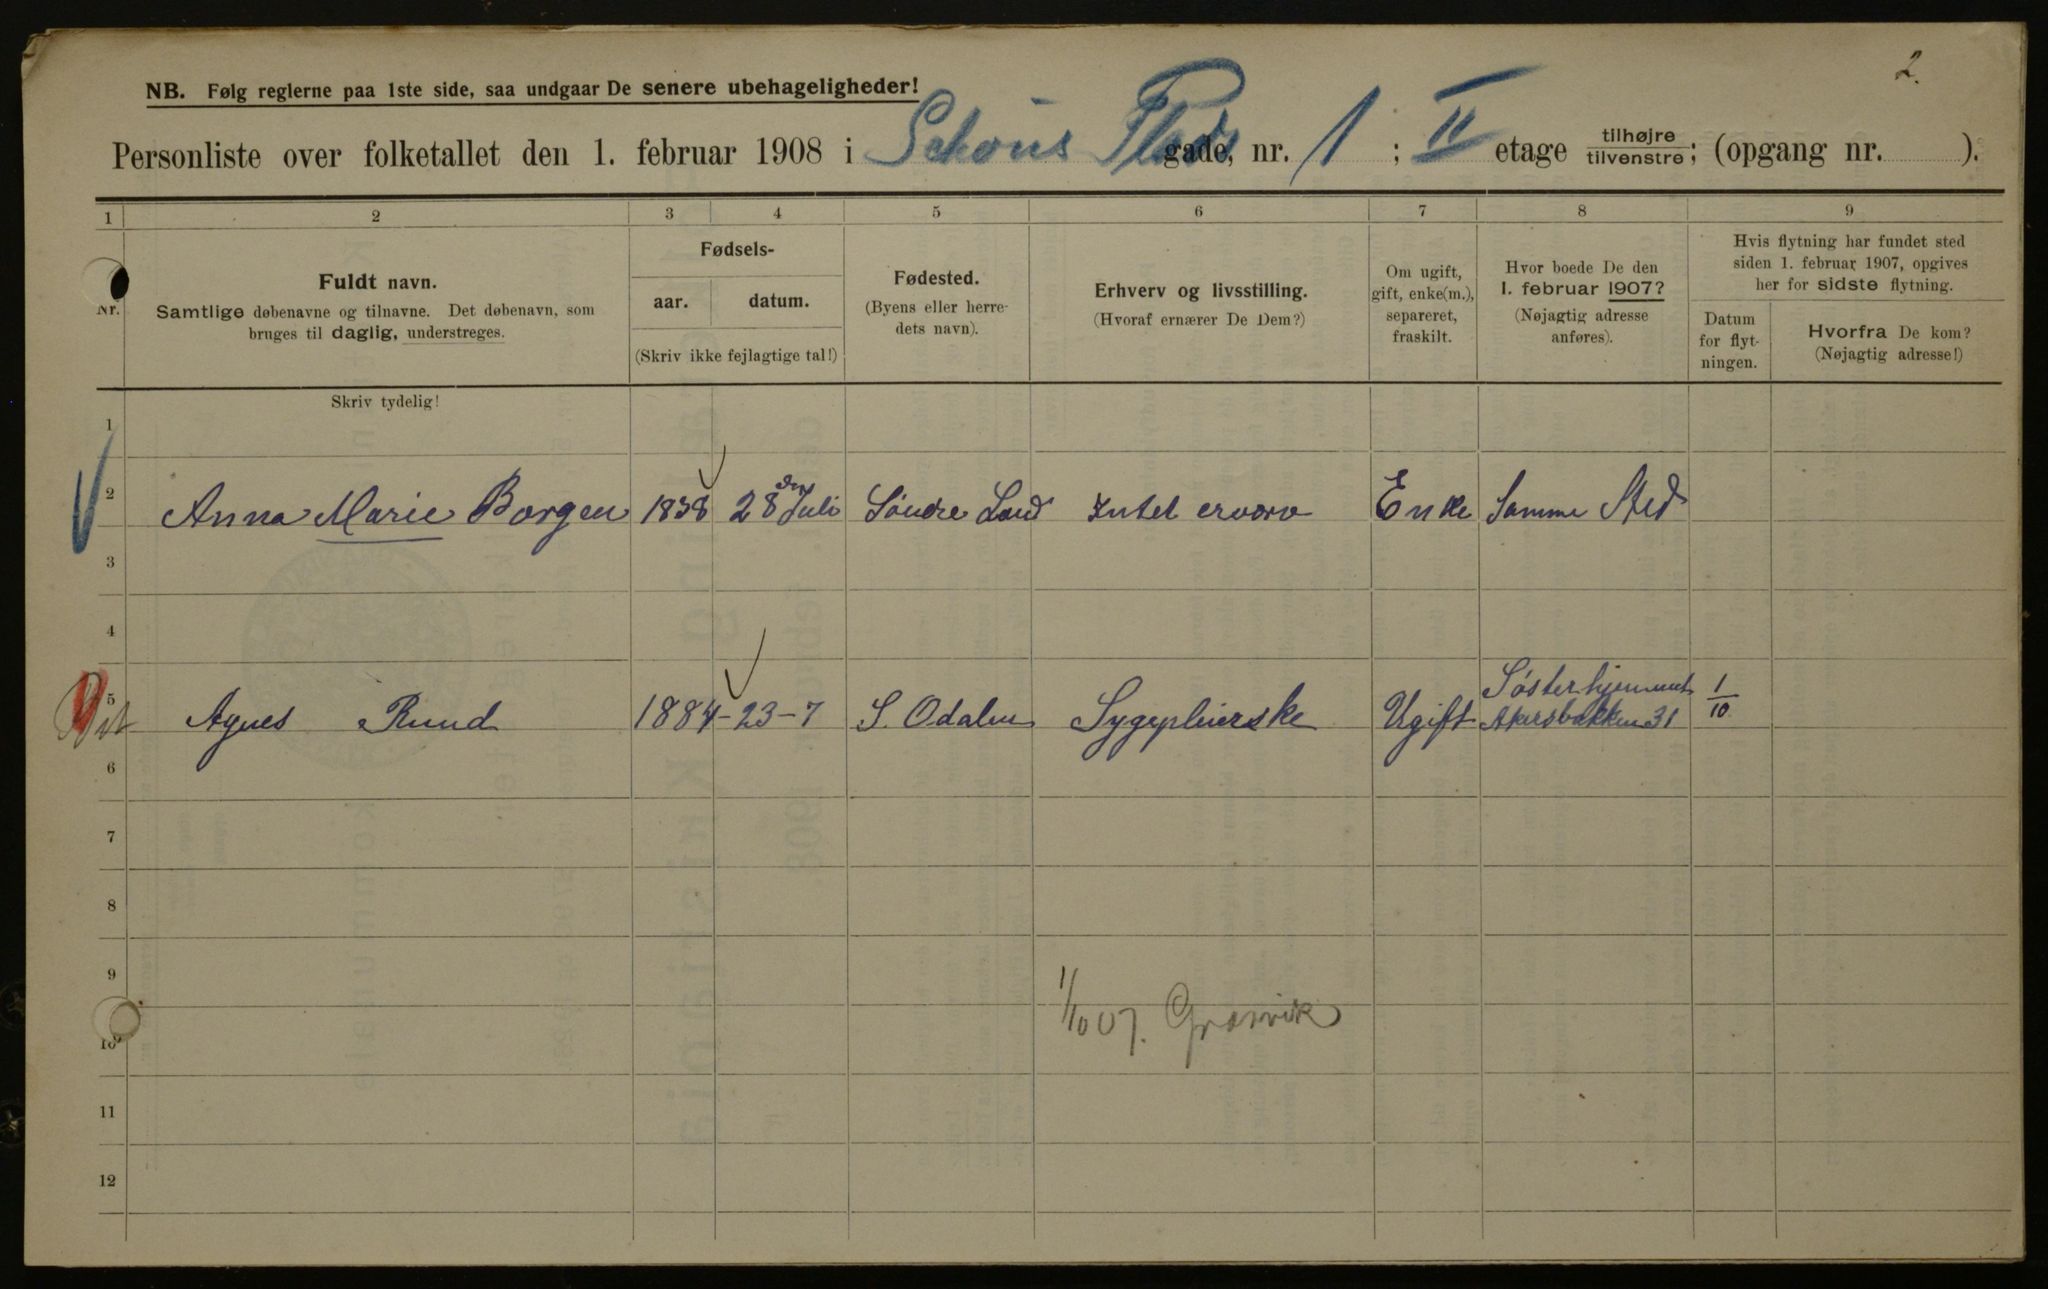 2.
NB. Følg reglerne paa 1ste side, saa undgaar De senere ubehageligheder!
Personliste over folketallet den 1. februar 1908 i Schous Plads gade, nr. 1 ; II etage tilhøjre/tilvenstre; (opgang nr. ).
1 2 3 4 5 6 7 8 9
Nr.
Fuldt navn.
Samtlige døbenavne og tilnavne. Det døbenavn, som
bruges til daglig, understreges.
Fødsels-
aar. datum.
(Skriv ikke fejlagtige tal!)
Fødested.
(Byens eller herre-
dets navn).
Erhverv og livsstilling.
(Hvoraf ernærer De Dem?)
Om ugift,
gift, enke(m.),
separeret,
fraskilt.
Hvor boede De den
1. februar 1907?
(Nøjagtig adresse
anføres).
Hvis flytning har fundet sted
siden 1. februar 1907, opgives
her for sidste flytning.
Datum
for flyt-
ningen.
Hvorfra De kom?
(Nøjagtig adresse!)
Skriv tydelig!
1
2 Anna Marie Borgen 1838 28 den Juli Söndre Land Intet erværv Enke Samme Sted
3
4
5 Agnes Ruud 1884 - 23 - 7 S. Odalen Sygepleierske Ugift Søsterhjemmet
Akersbakken 31 1/10
6
7
8
9
1/10 07.
10
11
12